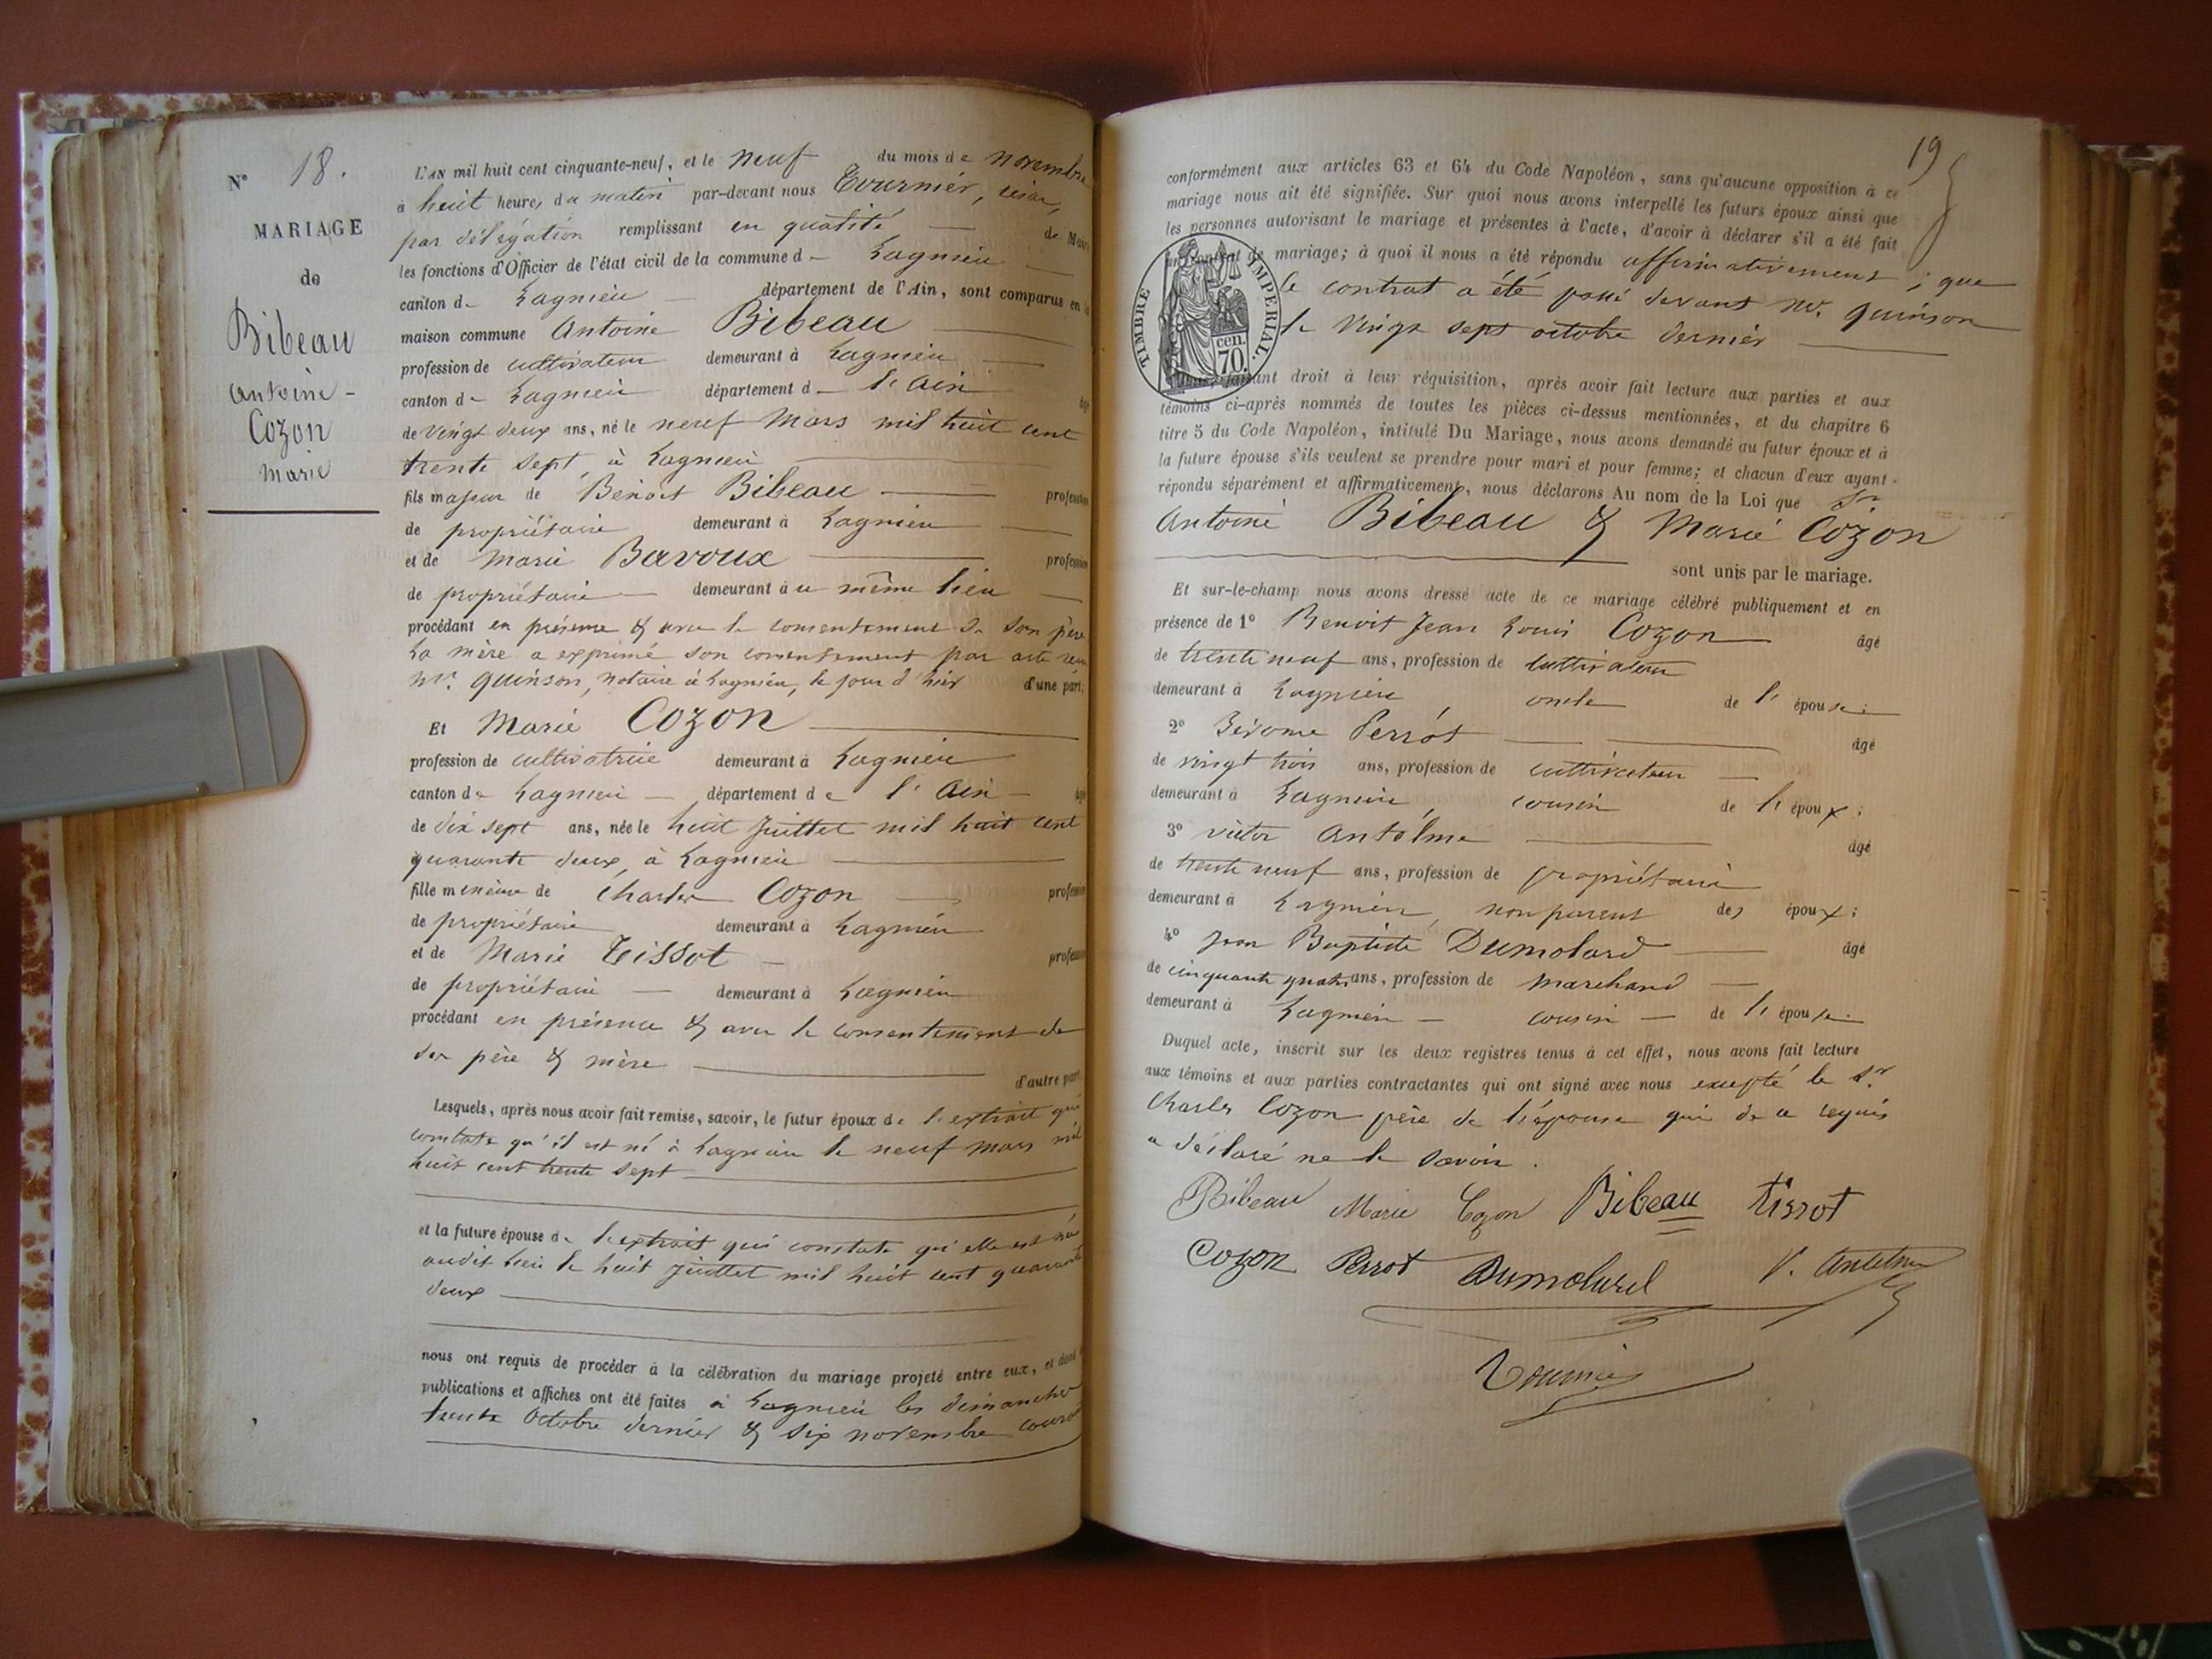 N° 18.
MARIAGE
de
Bibeau
Antoine -
Cozon
Marie
L'AN mil huit cent cinquante-neuf, et le neuf du mois de novembre
à huit heures du matin par-devant nous Tournier, César,
par délégation remplissant en qualité de Maire
les fonctions d'Officier de l'état civil de la commune de Lagnieu
canton de Lagnieu département de l'Ain, sont comparus en la
maison commune Antoine Bibeau
profession de cultivateur demeurant à Lagnieu
canton de Lagnieu département de l'Ain âgé
de vingt deux ans, né le neuf Mars mil huit cent
trente sept, à Lagnieu
fils majeur de Benoit Bibeau profession
de propriétaire demeurant à Lagnieu
et de Marie Bavoux profession
de propriétaire demeurant au même lieu
procédant en présence & avec le consentement de son père
La mère a exprimé son consentement par acte reçu
Me. Quinson, notaire à Lagnieu, le jour d'hier d'une part,
Et Marie Cozon
profession de cultivatrice demeurant à Lagnieu
canton de Lagnieu département de l'Ain âgé
de dix sept ans, née le huit Juillet mil huit cent
quarante deux, à Lagnieu
fille mineure de Charles Cozon profession
de propriétaire demeurant à Lagnieu
et de Marie Tissot profession
de propriétaire demeurant à Lagnieu
procédant en présence & avec le consentement de
ses père & mère
d'autre part.
Lesquels, après nous avoir fait remise, savoir, le futur époux de l'extrait qui
constate qu'il est né à Lagnieu le neuf mars mil
huit cent trente sept
et la future épouse de l'extrait qui constate qu'elle est née
audit lieu le huit Juillet mil huit cent quarante
deux
nous ont requis de procéder à la célébration du mariage projeté entre eux, et dont
publications et affiches ont été faites à Lagnieu les dimanches
trente Octobre dernier & six novembre courant
19
conformément aux articles 63 et 64 du Code Napoléon, sans qu'aucune opposition à ce
mariage nous ait été signifiée. Sur quoi nous avons interpellé les futurs époux ainsi que
les personnes autorisant le mariage et présentes à l'acte, d'avoir à déclarer s'il a été fait
un contrat de mariage; à quoi il nous a été répondu affirmativement; que
le contrat a été passé devant Me. Quinson
le vingt sept octobre dernier
TIMBRE IMPERIAL.
cen. 70.
faisant droit à leur réquisition, après avoir fait lecture aux parties et aux
témoins ci-après nommés de toutes les pièces ci-dessus mentionnées, et du chapitre 6
titre 5 du Code Napoléon, intitulé Du Mariage, nous avons demandé au futur époux et à
la future épouse s'ils veulent se prendre pour mari et pour femme; et chacun d'eux ayant
répondu séparément et affirmativement, nous déclarons Au nom de la Loi que Sr
Antoine Bibeau & Marie Cozon
sont unis par le mariage.
Et sur-le-champ nous avons dressé acte de ce mariage célébré publiquement et en
présence de 1° Benoit Jean Louis Cozon âgé
de trente neuf ans, profession de cultivateur
demeurant à Lagnieu oncle de l'épouse;
2° Jérome Perrot âgé
de vingt trois ans, profession de cultivateur
demeurant à Lagnieu, cousin de l'époux;
3° Victor Antelme âgé
de trente neuf ans, profession de propriétaire
demeurant à Lagnieu, non parent des époux;
4° Jean Baptiste Dumolard âgé
de cinquante quatre ans, profession de marchand
demeurant à Lagnieu cousin de l'épouse.
Duquel acte, inscrit sur les deux registres tenus à cet effet, nous avons fait lecture
aux témoins et aux parties contractantes qui ont signé avec nous excepté le Sr.
Charles Cozon père de l'épouse qui de ce requis
a déclaré ne le savoir.
Bibeau Marie Cozon Bibeau Tissot
Cozon Perrot Dumolard V. Antelme
Tournier